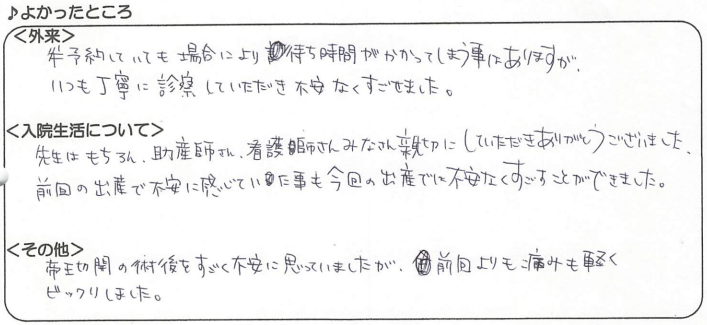 ♪よかったところ
<外来>
※予約していても場合により待ち時間がかかってしまう事はありますが、
いつも丁寧に診察していただき不安なくすごせました。
<入院生活について>
先生はもちろん、助産師さん、看護師さんみなさん親切にしていただきありがとうございました。
前回の出産で不安に感じていた事も今回の出産では不安なくすごすことができました。
<その他>
帝王切開の術後をすごく不安に思っていましたが、前回よりも痛みも軽く
ビックリしました。